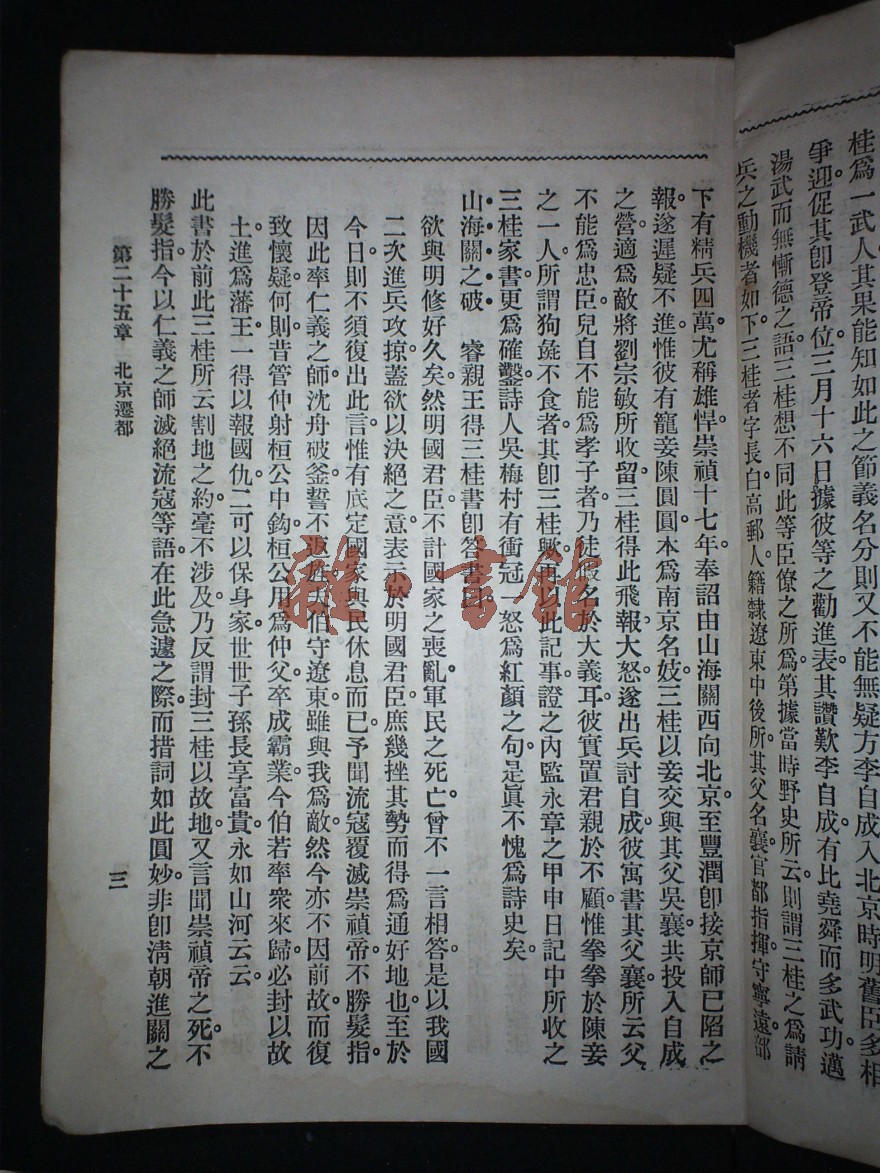 桂爲一武人其果能知如此之節義名分則又不能無疑方李自成入北京時明舊臣多相
爭迎促其卽登帝位三月十六日據彼等之勸進表其讚歎李自成有比堯舜而多武功邁
湯武而無慚德之語三桂想不同此等臣僚之所爲第據當時野史所云則謂三桂之爲請
兵之動機者如下三桂者字長白高郵人籍隸遼東中後所其父名襄官都指揮守寧遠部
下有精兵四萬尤稱雄悍崇禎十七年奉詔由山海關西向北京至豐潤卽接京師已陷之
報遂遲疑不進惟彼有寵妾陳圓圓本爲南京名妓三桂以妾交與其父吳襄共投入自成
之營適爲敵將劉宗敏所收留三桂得此飛報大怒遂出兵討自成彼寓書其父襄所云父
不能爲忠臣兒自不能爲孝子者乃徒假名於大義耳彼實置君親於不顧惟拳拳於陳妾
之一人所謂狗彘不食者其卽三桂歟再以此記事證之內監永章之甲申日記中所收之
三桂家書更爲確鑿詩人吳梅村有衝冠一怒爲紅顏之句是眞不愧爲詩史矣
山海關之破　睿親王得三桂書卽答書曰
欲與明修好久矣然明國君臣不計國家之喪亂軍民之死亡曾不一言相答是以我國
二次進兵攻掠蓋欲以決絕之意表示於明國君臣庶幾挫其勢而得爲通好地也至於
今日則不須復出此言惟有底定國家與民休息而已予聞流寇覆滅崇禎帝不勝髮指
因此率仁義之師沈舟破釜誓不返旌夫伯守遼東雖與我爲敵然今亦不因前故而復
致懷疑何則昔管仲射桓公中鈎桓公用爲仲父卒成霸業今伯若率衆來歸必封以故
土進爲藩王一得以報國仇二可以保身家世世子孫長享富貴永如山河云云
此書於前此三桂所云割地之約毫不涉及乃反謂封三桂以故地又言聞崇禎帝之死不
勝髮指今以仁義之師滅絕流寇等語在此急遽之際而措詞如此圓妙非卽淸朝進關之
第二十五章　北京遷都
三
雜·書館